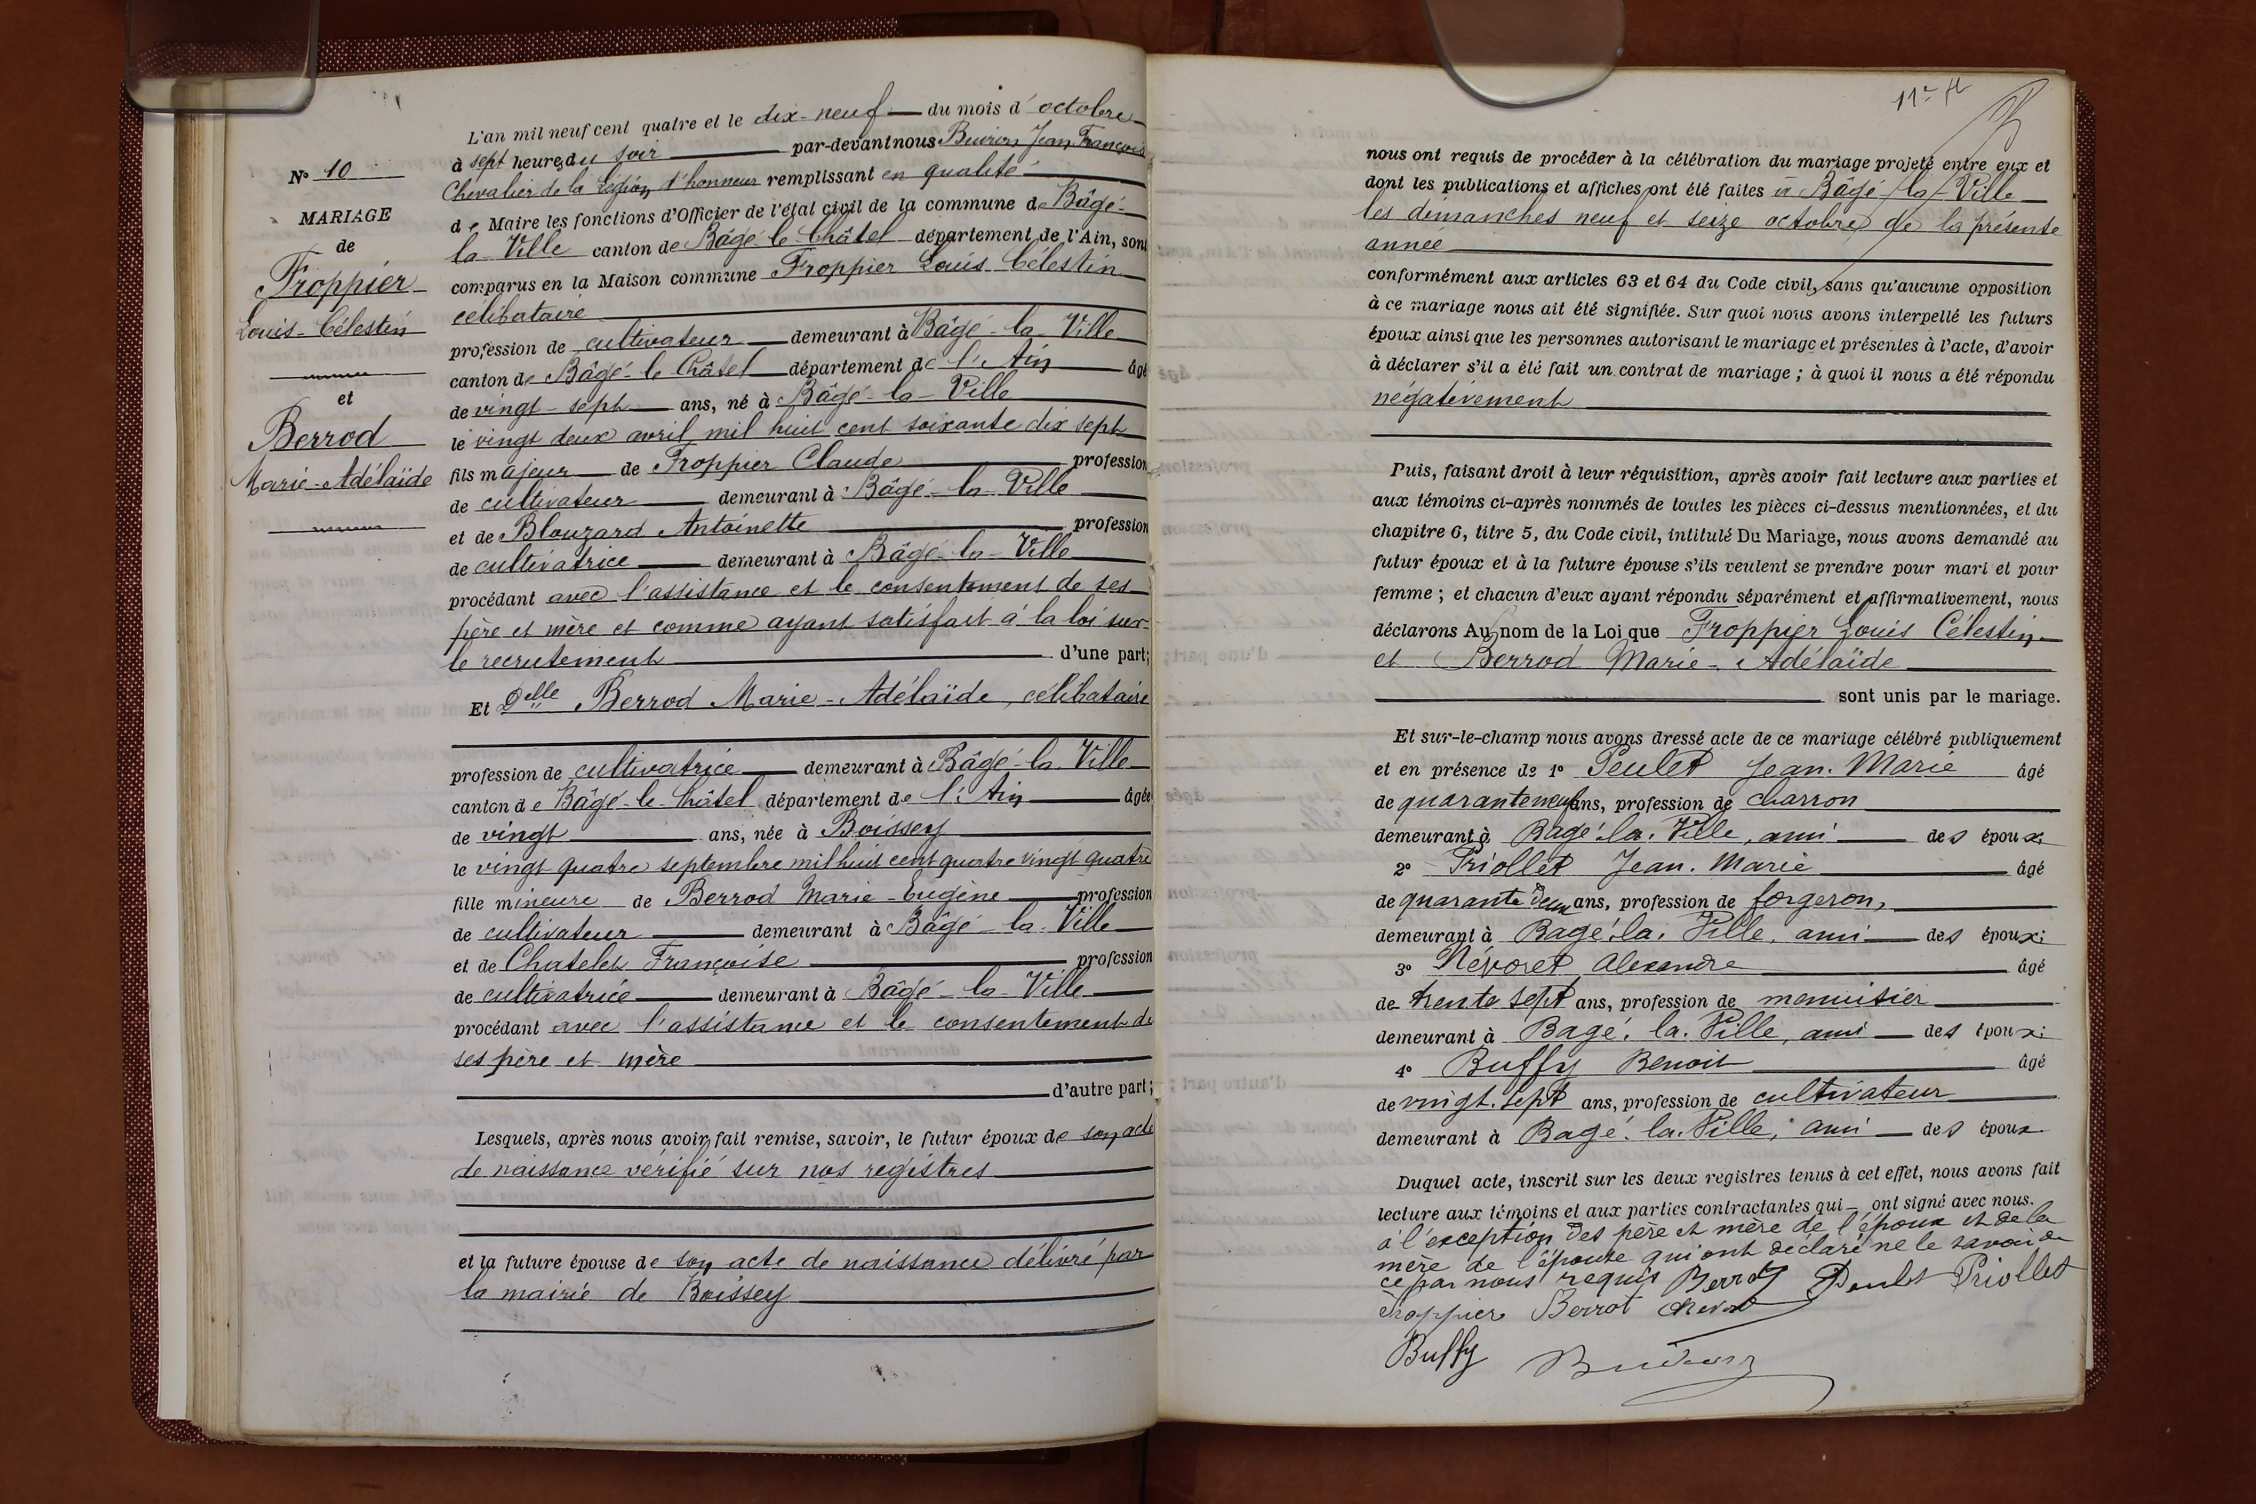 L'an mil neuf cent quatre et le dix-neuf du mois d'octobre
à sept heures du soir par-devant nous Jean François
Chevalier de la Légion d'honneur remplissant en qualité
de Maire les fonctions d'Officier de l'état civil de la commune de Bâgé-
la-Ville canton de Bâgé-le-Châtel département de l'Ain, sont
comparus en la Maison commune Froppier Louis Célestin
célibataire
profession de cultivateur demeurant à Bâgé-la-Ville
canton de Bâgé-le-Châtel département de l'Ain âgé
de vingt-sept ans, né à Bâgé-la-Ville
le vingt deux avril mil huit cent soixante dix sept
fils majeur de Froppier Claude profession
de cultivateur demeurant à Bâgé-la-Ville
et de Blouzard Antoinette profession
de cultivatrice demeurant à Bâgé-la-Ville
procédant avec l'assistance et le consentement de ses
père et mère et comme ayant satisfait à la loi sur
le recrutement d'une part;
Et Delle Berrod Marie-Adélaïde, célibataire
profession de cultivatrice demeurant à Bâgé-la-Ville
canton de Bâgé-le-Châtel département de l'Ain âgée
de vingt ans, née à Boissey
le vingt quatre septembre mil huit cent quatre vingt quatre
fille mineure de Berrod Marie-Eugène profession
de cultivateur demeurant à Bâgé-la-Ville
et de Chatelet Françoise profession
de cultivatrice demeurant à Bâgé-la-Ville
procédant avec l'assistance et le consentement de
ses père et mère
d'autre part;
Lesquels, après nous avoir fait remise, savoir, le futur époux de son acte
de naissance vérifié sur nos registres
et la future épouse de son acte de naissance délivré par
la mairie de Boissey
No 10
MARIAGE
de
Froppier
Louis-Célestin
et
Berrod
Marie-Adélaïde
nous ont requis de procéder à la célébration du mariage projeté entre eux et
dont les publications et affiches ont été faites à Bâgé-la-Ville
les dimanches neuf et seize octobre de la présente
année
conformément aux articles 63 et 64 du Code civil, sans qu'aucune opposition
à ce mariage nous ait été signifiée. Sur quoi nous avons interpellé les futurs
époux ainsi que les personnes autorisant le mariage et présentes à l'acte, d'avoir
à déclarer s'il a été fait un contrat de mariage ; à quoi il nous a été répondu
négativement
Puis, faisant droit à leur réquisition, après avoir fait lecture aux parties et
aux témoins ci-après nommés de toutes les pièces ci-dessus mentionnées, et du
chapitre 6, titre 5, du Code civil, intitulé Du Mariage, nous avons demandé au
futur époux et à la future épouse s'ils veulent se prendre pour mari et pour
femme ; et chacun d'eux ayant répondu séparément et affirmativement, nous
déclarons Au nom de la Loi que Froppier Louis Célestin
et Berrod Marie-Adélaïde
sont unis par le mariage.
Et sur-le-champ nous avons dressé acte de ce mariage célébré publiquement
et en présence de 1o Peulet Jean-Marie âgé
de quarante neuf ans, profession de charron
demeurant à Bagé-la-Ville, ami des époux;
2o Priollet Jean-Marie âgé
de quarante deux ans, profession de forgeron,
demeurant à Bagé-la-Ville, ami des époux;
3o Névoret Alexandre âgé
de trente sept ans, profession de menuisier
demeurant à Bagé-la-Ville, ami des époux;
4o Buffy Benoit âgé
de vingt-sept ans, profession de cultivateur
demeurant à Bagé-la-Ville, ami des époux
Duquel acte, inscrit sur les deux registres tenus à cet effet, nous avons fait
lecture aux témoins et aux parties contractantes qui ont signé avec nous.
à l'exception des père et mère de l'époux et de la
mère de l'épouse qui ont déclaré ne le savoir de
ce par nous requis Berrod Peulet Priollet
Froppier Berrot
Buffy